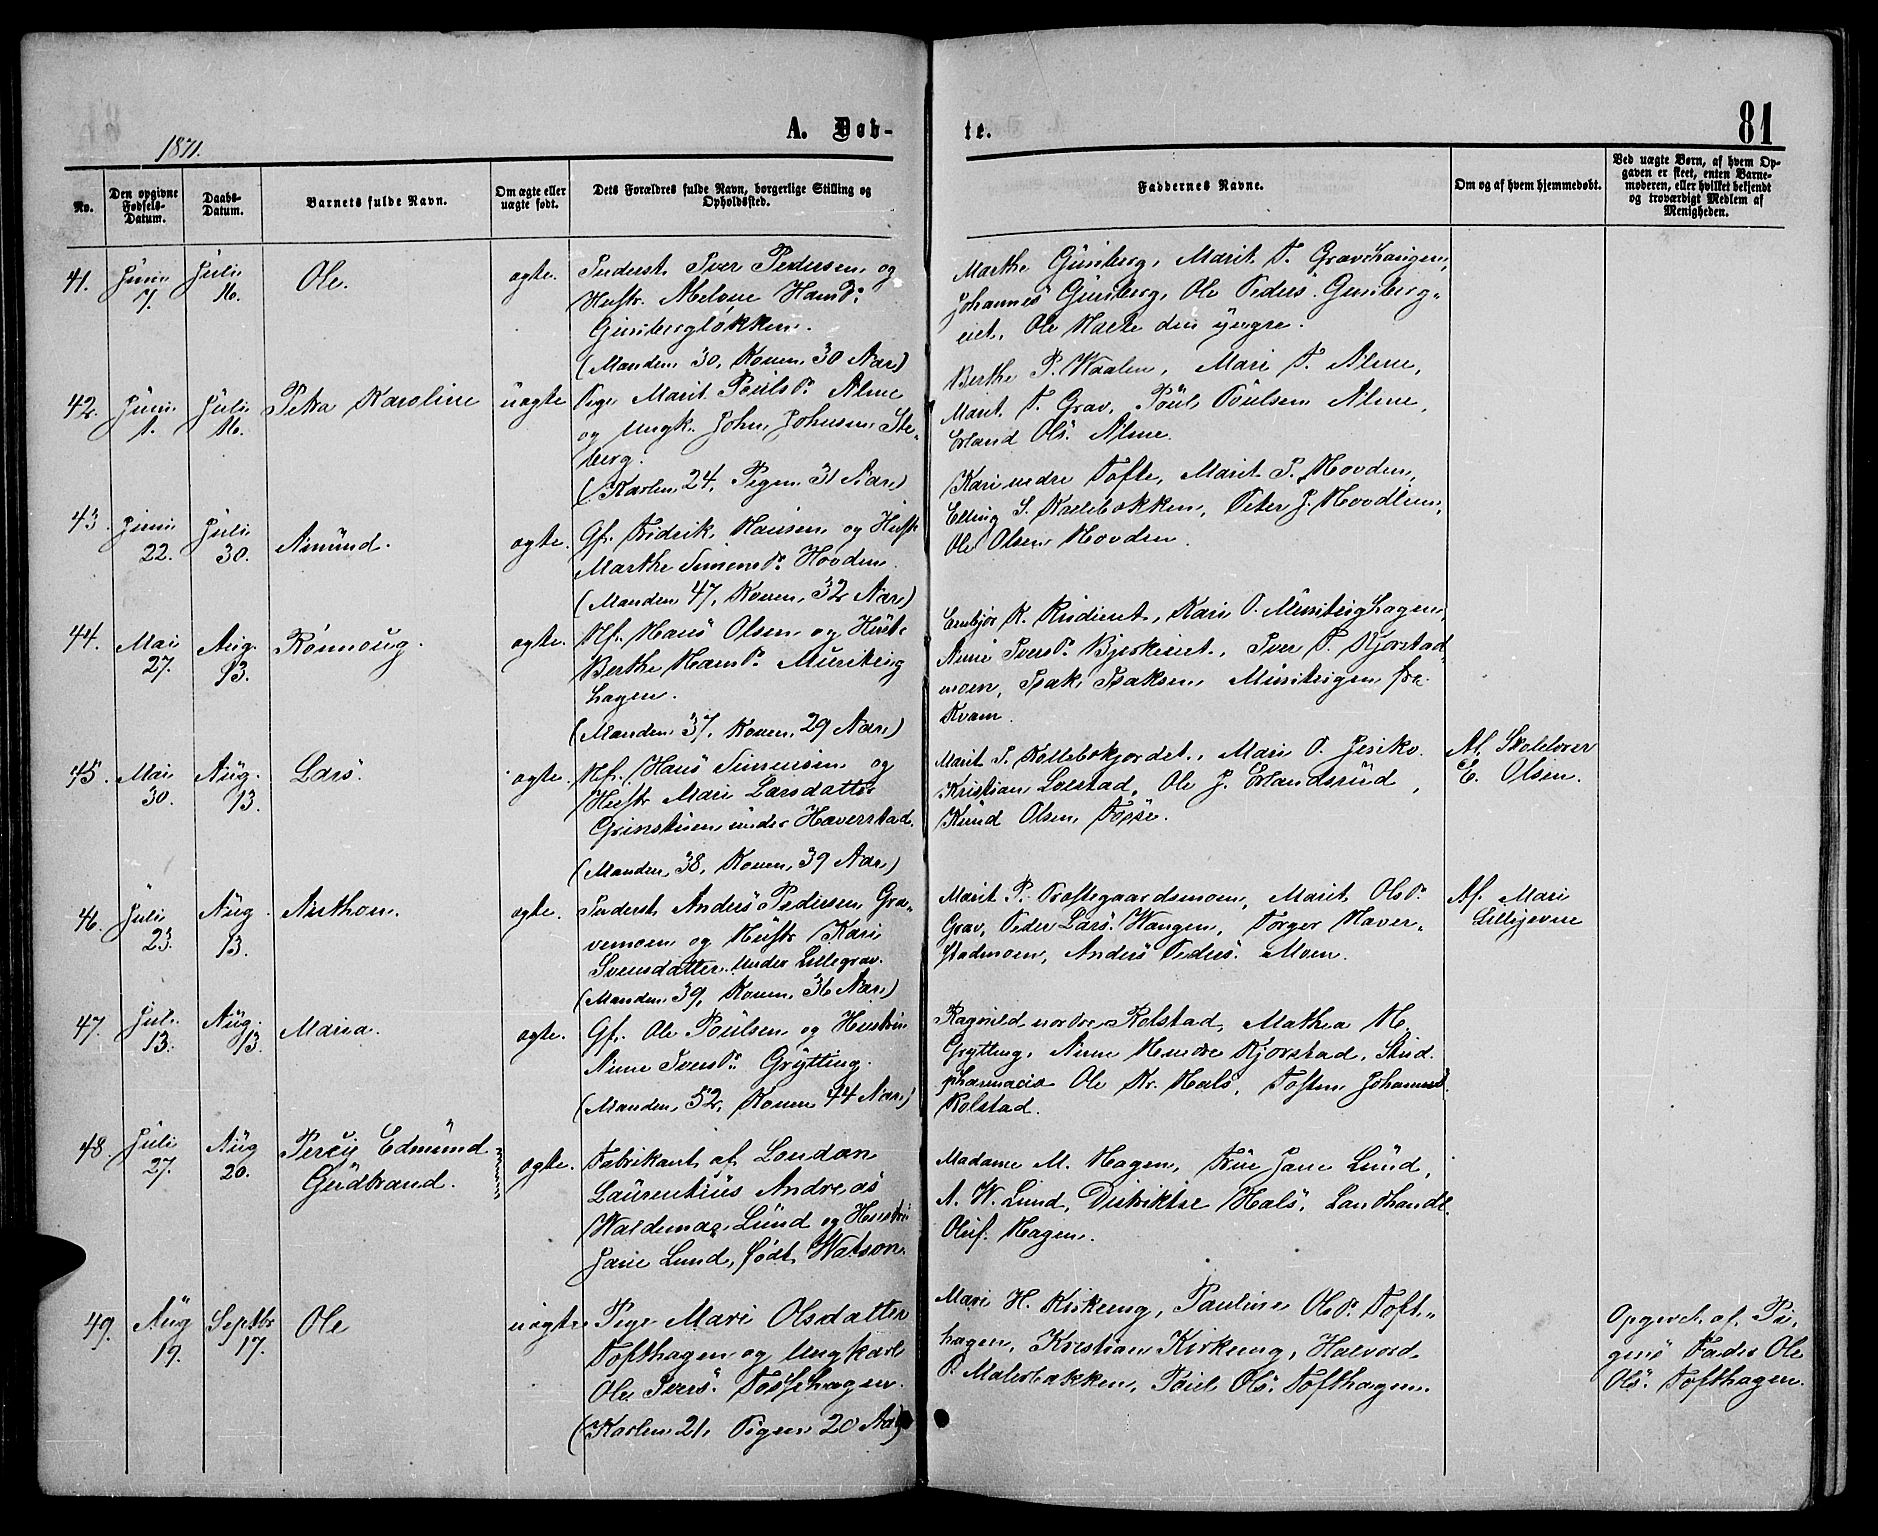 1871.
A. Døb-
te.
81
No.
Den opgivne Fødsels-Datum.
Daabs-Datum.
Barnets fulde Navn.
Om ægte eller uægte født.
Dets Forældres fulde Navn, borgerlige Stilling og Opholdssted.
Faddernes Navne.
Om og af hvem hjemmedøbt.
Ved uægte Børn, af hvem Opgaven er skeet, enten Barnemoderen, eller hvilket bekjendt og troværdigt Medlem af Menigheden.
41. Juni 7. Juli 16. Ole. ægte.
Inderst Iver Pedersen og
Hustr. Hansd.
(Manden 30, Konen 30 Aar)
Marthe Marit
Johannes Ole Peders.
eiet, Ole den yngre.
42. Juni 1. Juli 16. Petra Karoline uægte
Pige Marit Poulsd. Alme
og Ungk. John Johnsen Ste-
berg.
(Karlen 24, Pigen 31 Aar)
Berthe P. Waalen, Mari T. Alme,
Marit T. Grav, Poul Poulsen Alme,
Erland Ols. Alme.
43. Juni 22. Juli 30. Amund. ægte.
Gf. Fredrik Hansen og Hustr.
Marthe Simensd. Hovden.
(Manden 47, Konen 32 Aar)
Kari nedre Tofte, Marit P. Hovden,
Elling S. Peter J.
Ole Olsen Hovden.
44. Mai 27. Aug. 13. Rønnoug. ægte.
Hf. Hans Olsen og Hust.
Berthe Hansd.
hagen.
(Manden 37, Konen 29 Aar)
K. Kari
Anne Iversd. Iver P. Kjorstad-
moen, Isak Isaksen fra
Kvam.
45. Mai 30. Aug. 13. Lars. ægte.
Hf. Hans Simensen og
Hustr Mari Larsdatter
Grinstuen under Haverstad.
(Manden 38, Konen 39 Aar)
Marit Mari
Kristian Lolstad, Ole J. Erlandsrud,
Knud Olsen Fosse.
Af Skolelærer
E. Olsen.
46. Juli 23. Aug. 13. Anthon. ægte.
Inderst Anders Pedersen Gra-
vemoen og Hustr Kari
Svensdatter under Lillegrav.
(Manden 39, Konen 36 Aar)
Marit P. Præstegaardsmoen, Marit Olsd.
Grav, Peder Lars. Wangen, Torger Haver-
stadmoen, Anders Peders. Moen.
Af Mari
47. Juli 13. Aug. 13. Maria. ægte.
Gf. Ole Poulsen og Hustru
Anne Iversd. Grytting.
(Manden 52, Konen 44 Aar)
Ragnild nordre Rolstad, Mathea H.
Grytting, Anne Kjorstad, Stud.
pharmacia Ole Kr. Hals, Johannes
Rolstad.
48. Juli 27. Aug 20. Percy Edmund
Gudbrand. ægte.
Fabrikant af London
Laurentius Andreas
Waldemar Lund og Hustru
Jane Lund, født Watson.
Madame M. Hagen, Frue Jane Lund,
A. W. Lund, Distriktsl. Hals, Landhandl.
Oluf Hagen.
49. Aug 19. Septbr 17. Ole uægte
Pige Mari Olsdatter
Tofthagen og Ungkarl
Ole Ivers. Fossehagen.
(Karlen 21, Pigen 20 Aar)
Mari H. Kirkeeng, Pauline Olsd. Toft-
hagen, Kristian Kirkeeng, Halvord
P. Malerbakken, Poul Ols. Tofthagen.
Opgivet af Pi-
gens Fader Ole
Ols. Tofthagen.